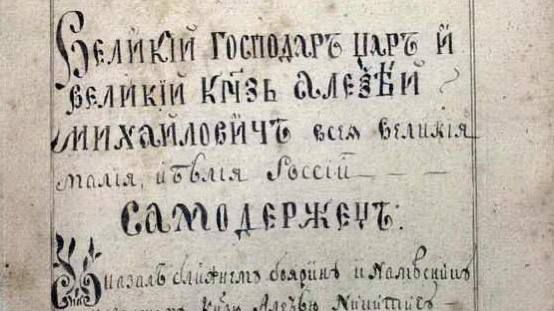 Великій господаръ царъ и
великій кнзь Алеѯѣй
Михайловичъ всея великія
малія, и бѣлія Россіи
самодержецъ:
Указалъ ближнемъ бояринѣ и Намѣсникъ
Кнзю Алеѯѣю Никитичѣ